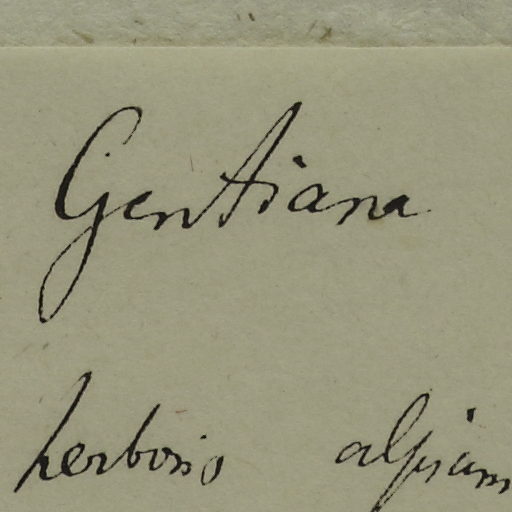 Gentiana
herbosis alpium